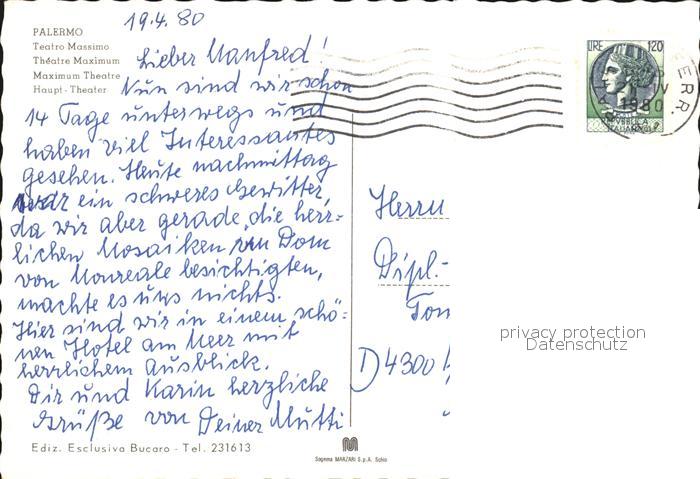 19.4.80
PALERMO
Teatro Massimo
Théatre Maximum
Maximum Theatre
Haupt-Theater
Lieber Manfred!
Nun sind wir schon
14 Tage unterwegs und
haben viel Interessantes
gesehen. Heute nachmittag
war ein schweres Gewitter,
da wir aber gerade die herr=
lichen Mosaiken im Dom
von Monreale besichtigten,
machte es uns nichts.
Hier sind wir in einem schö=
nen Hotel am Meer mit
herrlichem Ausblick.
Dir und Karin herzliche
Grüße von Deiner Mutti
Ediz. Esclusiva Bucaro - Tel. 231613
Sogema MARZARI S.p.A. Schio
LIRE 120
REPUBBLICA
ITALIANA
1980
FERR.
Herrn
Dipl.-
Tom
D 4300
privacy protection
Datenschutz